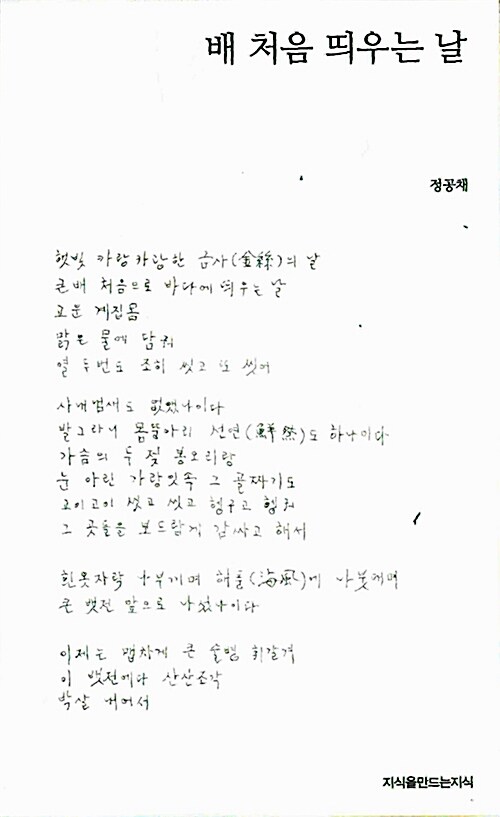 배 처음 띄우는 날
정공채
햇빛 카랑카랑한 금사(金絲)의 날
큰 배 처음으로 바다에 띄우는 날
고운 계집몸
맑은 물에 담궈
열 두번도 조히 씻고 또 씻어
사내범새도 없앴나이다
발그라니 몸뚱아리 선연(鮮然)도 하나이다
가슴의 두 젖 봉오리랑
눈 아린 가랑잇속 그 골짜기도
고이고이 씻고 씻고 헹구고 헹궈
그 곳들을 보드랍게 감싸고 해서
흰옷자락 나부끼며 해풍(海風)에 나붓예며
큰 뱃전 앞으로 나섰나이다
이제는 맵차게 큰 술병 휘갈겨
이 뱃전에다 산산조각
박살 내어서
지식을만드는지식